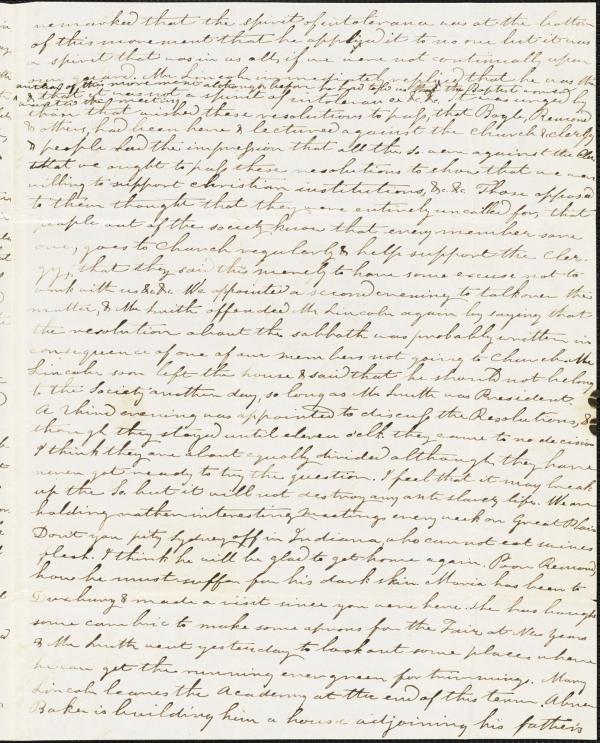 remarked that the spirit of intolerance was at the bottom
of this movement that he applied it to no one but it was
a spirit that was in us all, if we were not continually upon
our guard. Mr Lincoln immediately replied that he was the
author of this movement although before he had told us that the Baptist caused
& that it was not a spirit of intolerance &c &c. It was urged by
those that wished these resolutions to pass, that Bogle, Remond
& others, had been here & lectured against the church & clergy
& people had the impression that all the So. were against the
that we ought to pass these resolutions to show that we were
willing to support christian institutions, &c &c. Those opposed
to them thought that they were entirely uncalled for, that
people out of the society know that every member save
one, goes to church regularly & help support the Cler-
gy, that they said this merely to have some excuse not to
work with us &c &c We appointed a second evening to talk over the
matter, & Mr Smith offended Mr Lincoln again by saying that
the resolution about the sabbath was probably written in
consequence of one of our members not going to church Mr
Lincoln soon left the house & said that he should not belong
to the Society another day, so long as Mr Smith was President.
A third evening was appointed to discuss the Resolutions, &
though they stayed until eleven o'clk they came to no decision
I think they are about equally divided although they have
never got ready to try the question. I feel that it may break
up the So. but it will not destroy any anti slavery life. We are
holding rather interesting meetings every week on Great Plain
Don't you pity Sydney off in Indiana, who cannot eat swines
flesh. I think he will be glad to get home again. Poor Remond,
how he must suffer for his dark skin. Maria has been to
Duxbury & made a visit since you were here. She has bought
some cambric to make some aprons for the Fair, at New Years
& Mr Smith went yesterday to look out some places where
he can get the running evergreen for trimming. Mary
Lincoln leaves the Academy at the end of this term. Abner
Baker is building him a house adjoining his father's